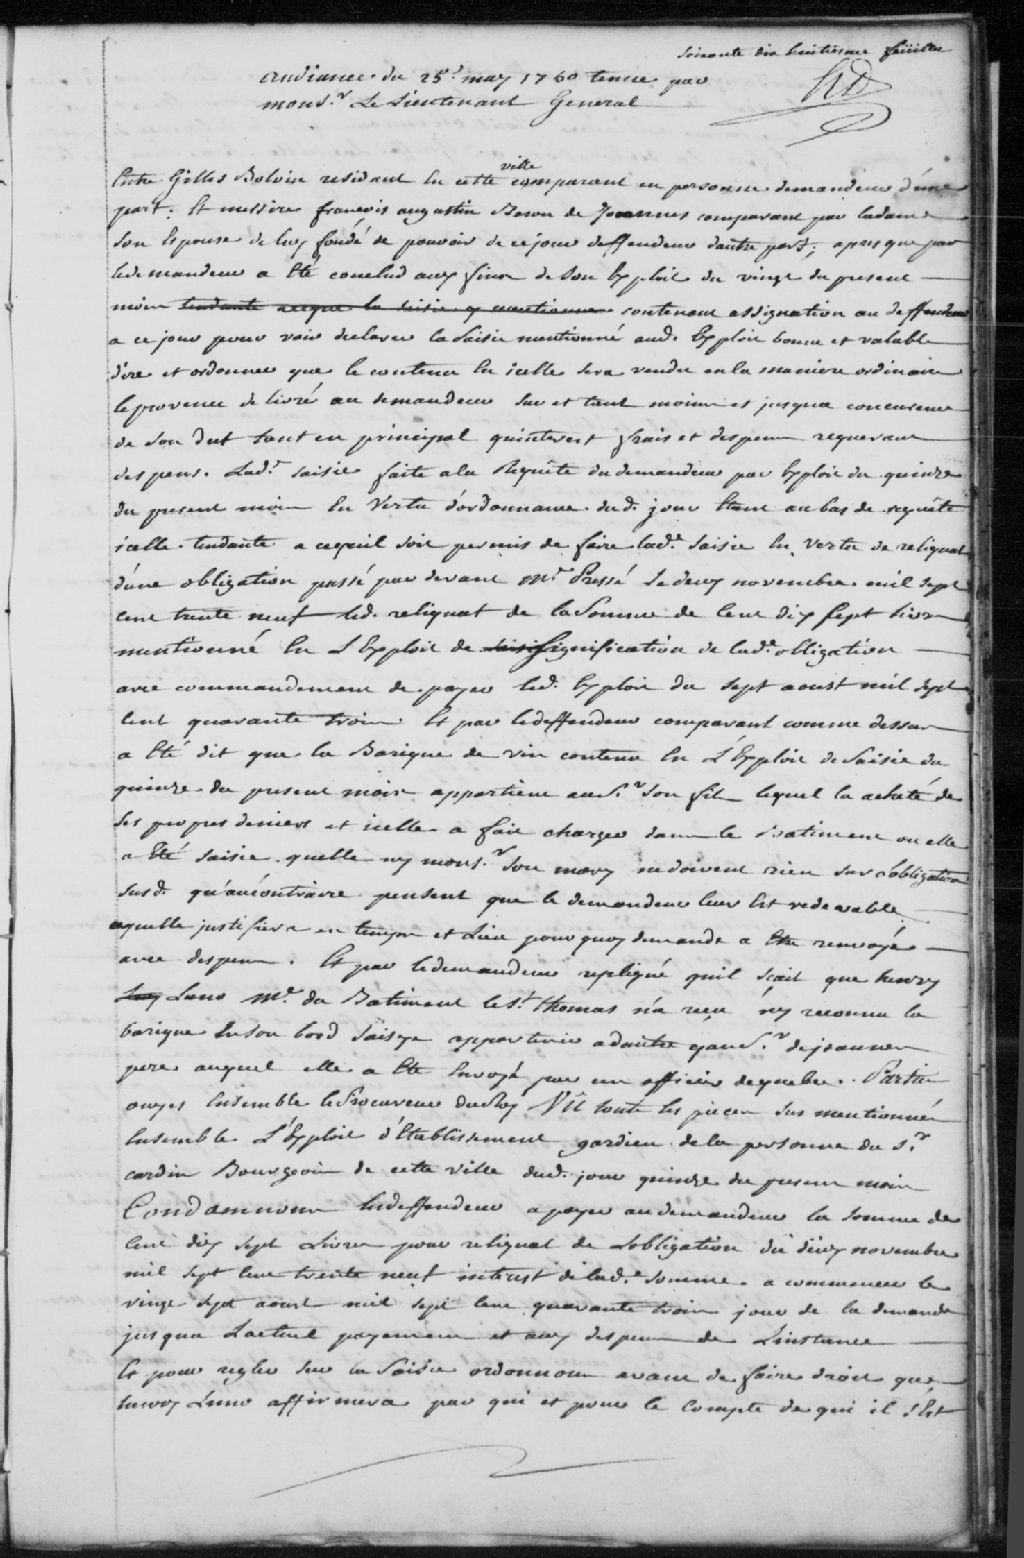 soixante dix huitiesme feuillet
audiance du 25e may 1760 tenue par
monsr Le Lieutenant General
ville
Entre Gilles Bolvin residant En cette comparant en personne demandeur d'une
part. Et messire francois augustin Baron de Joannes comparant par la dame
son Epouse de luy fondé de pouvoir de ce jour deffendeur dautre part; apres que par
le demandeur a Eté conclud aux fins de son Exploit du vingt du present
mois tendante aceque la saisie y mentionnée contenant assignation au deffendeur
a ce jour pour voir declarer la saisie mentionné aud. Exploit bonne et valable
dire et ordonner que le contenu En icelle sera vendu en la maniere ordinaire
le provenu de livré au demandeur sur et tant moins et jusqua concurence
de son dut tant en principal qu'interest frais et despens requerant
despens. Lade saisie faite a la Requête du demandeur par Exploit du quinze
du present mois En vertu d'ordonnance dud. jour Etant au bas de requête
icelle tendante a cequil soit permis de faire lade saisie En vertu de reliquat
d'une obligation passé par devant Me Pressé le deux novembre mil sept
cent trente neuf led. reliquat de la somme de Cent dix sept livres
mentionné En L'Exploit de saisi signification de lade obligation
avec commandement de payer led. Exploit du sept aoust mil sept
Cent quarante trois. Et par le deffendeur comparant comme dessus
a Eté dit que la Barique de vin contenu En L'Exploit de saisie du
quinze du present mois appartient au Sr son fils lequel la acheté de
ses propres deniers et icelle a fait charger dans le batiment ou elle
a Eté saisie quelle ny monsr son mary ne doivent rien sur l'obligation
susd. qu'aucontraire pensent que le demandeur leur Est redevable
aquelle justifiera en temps et Lieu pourquoy demande a Etre renvoyé
avec despens. Et par le demandeur repliqué quil sçait que henry
Luno Me du Batiment le St thomas n'a reçu ny reconnu la
barique En son bord saisye appartenir a dautre qau Sr de joannes
pere auquel elle a Eté Envoyé par un officier de quebec. Parties
ouyes Ensemble le Procureur du Roy Vû toute les pieces sus mentionnés
Ensemble L'Exploit d'Etablissement gardien de la personne du Sr
cardin Bourgeois de cette ville dud. jour quinze du present mois
Condamnons le deffendeur a payer au demandeur la somme de
Cent dix sept Livres pour reliquat de Lobligation du deux novembre
mil sept Cent trente neuf interest de lade somme a commencer le
vingt sept aoust mil sept Cent quarante trois jour de la demande
jusqua Lactuel payement et aux despens de Linstance
Et pour regler sur la saisie ordonnons avant de faire droit que
henry Luno affirmera par qui et pour le compte de qui il s'Est